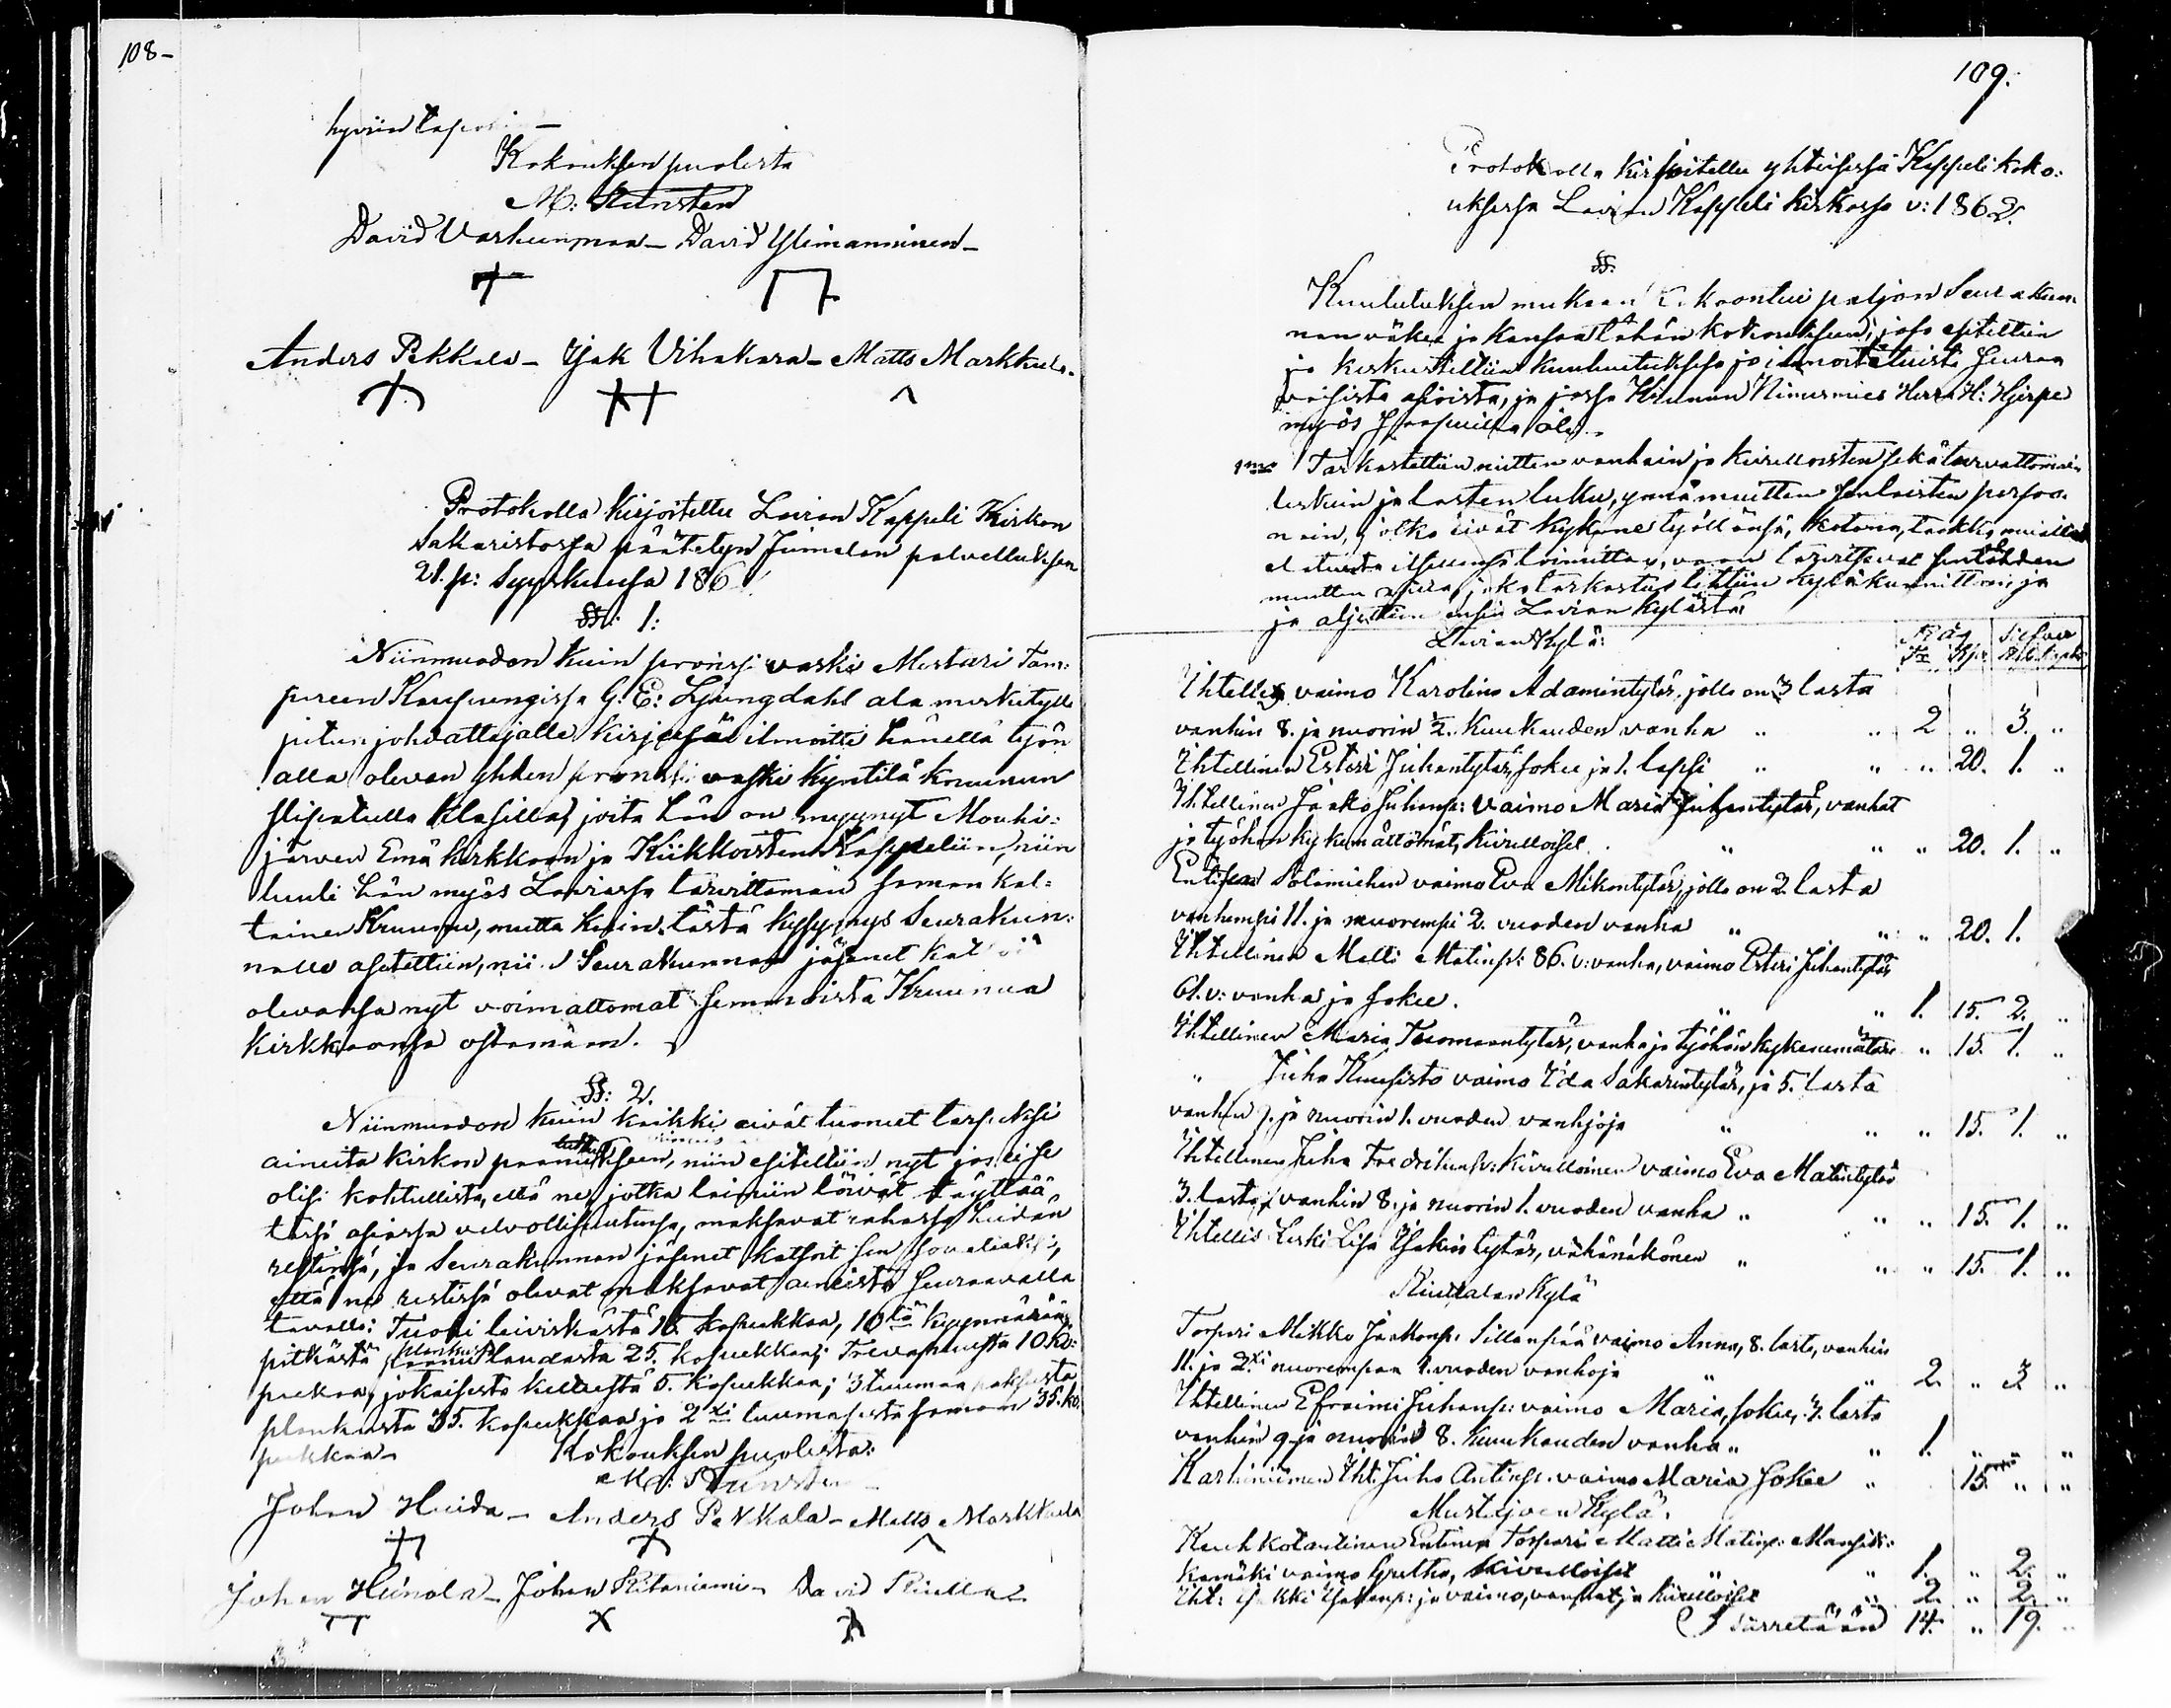 108-
hyviin
Kokouksen puolesta
M: Stensten
David Varhenmaa- David Ylimanninen-
Anders Pekkala- Isak Vihakara- Matts Markkula-
Protokolla kirjoitettu Lavian Kappeli Kirkon
sakaristossa päätetyn Jumalan palvelluksen
21. p: Syyskuussa 186
§§: 1:
Niinmuodon kuin pronssi vaski Mestari Tam:
pereen Kaupungissa G. E: Ljungdahl ala merkitylle
pitun johdattajalle kirjeesä ilmoitti hänellä työn
alla olevan yhden pronssi vaski Kyntilä kruunun
slipatulla klasilla, joita hän on myynyt Mouhi:
järven Emä kirkkoon ja Kiikkoisten Kappeliin, niin
luuli hän myös Laviassa tarvittaman saman kal:
tainen Kruunu, mutta kuin tästä kysymys Seurakun:
nalle asetettiin, nii Seurakunnan jäsenet
olevansa nyt voimattomat semmoista Kruunua
Kirkkoonsa ostamaan.
§§: 2.
Niinmuodon kuin kaikki eivät tuonet tarpeeksi
aineita kirkon, niin esitettiin nyt jos eise
olisi kohtullista, että ne, jotka laimiin löivät täyttää
tässä asiassa velvollisuutensa, maksavat rahassa heidän
restinsä, ja Seurakunnan jäsenet katsoit sen soveliaksi,
että ne restissä olevat maksavat aineista seuraavalla
tavalla: Tuohi leiviskästä 15 kopeekkaa, 10 kyynärän
pitkästä laudasta 25. kopeekkaa; 10 ko:
peekaa, jokaisesta 5. kopeekkaa; 3 tuuman paksusta
plankusta 35. kopeekkaa ja 2 tuumasesta samoin 35. ko:
peekkaa-
Kokouksen puolesta:
M: Stensten
Johan Heida- Anders Pekkala- Matts Markkula
Johan Heinola- Johan Ritaniemi- David Riutta
109.
Protokolla kirjoitettu yhteisessä Kappeli koko:
uksessa Lavian Kappeli kirkossa v: 1862.
§§:
Kuulutuksen mukaan kokoontui paljon Seurakun:
nan väkeä ja kansaa tähän kokoukseen; josa esiteltiin
ja keskusteltiin kuulutuksessa jo ilmoitetuista seuraa
vaisista asioista, ja jossa Kruunun Nimismies Herra H: Hjerpe
myös saapuvilla oli.
1mo Tarkastettiin niitten vanhain ja kivelloisten sekä turvattomain
leskein ja lasten luku, ynnä muitten senlaisten persoo:
nain, jotka eivät kykene työllänsä, kotona, taikka muialla
elatusta itsellensä toimittaa, vaan tarvitsevat sentähden
muitten apua, joka tarkastus tehtiin kyläkunnittain, ja
ja aljettiin ensin Lavian kylästä
Lavian Kylä:
Ihtellis vaimo Karolina Adamintytär jolla on 3 lasta
vanhin 8. ja nuorin ½. Kuukauden vanha " " 2 " 3. "
Ihtellinen Esteri Juhantytär, sokee ja 1. lapsi " " " 20. 1. "
Ihtellinen Jaako Juhanp: vaimo Maria Juhantytär, vanhat
ja työhön kykenemättömät, kivelloiset " " " 20. 1. "
Entisen Solamiehen vaimo Eva Mikontytär, jolla on 2 lasta
vanhempi 11. ja nuorempi 2. vuoden vanha " " " 20. 1.
Ihtellinen Matti Matinp: 86. v: vanha, vaimo Esteri Juhantytär
61. v: vanha ja sokee. " " 1. 15. 2. "
Ihtellinen Maria Tuomaantytär, vanha ja työhön kykenemätön " 15. 1. "
" Juha Kuusisto vaimo Ida Sakarintytär, ja 5. lasta
vanhin ja nuorin 1. vuoden vanhoja " " " 15. 1. "
Ihtellinen Juha Fredrikinp: kivulloinen vaimo Eva Matintytär
3. lasta, vanhin 8. ja nuorin 1. vuoden vanha " " " 15. 1. "
Ihtellis Leski Lisa Isakin tytär, vähänäkönen " " " 15. 1. "
Riuttalan Kylä
Torpari Mikko Jaakonp: Sillanpää vaimo Anna, 8. lasta, vanhin
11. ja 2 nuorempaa 1. vuoden vanhoja " " 2. " 3. "
Ihtellinen Efraimi Juhanp: vaimo Maria, sokee, 3. lasta
vanhin 9 ja nuorin 8. kuukauden vanha " " 1. " " "
Karhiniemen Iht: Juho Antinp: vaimo Maria sokee " 15. " "
Mustajoen Kylä
Entinen Torpari Matti Matinp: Mansik:
kamäki vaimo Gretha, kivulloiset " 1. " 2. "
Iht: Isakki Isakinp: ja vaimo, vanhat ja kivulloiset " 2. " 2. "
Siirretään 14. " 19. "